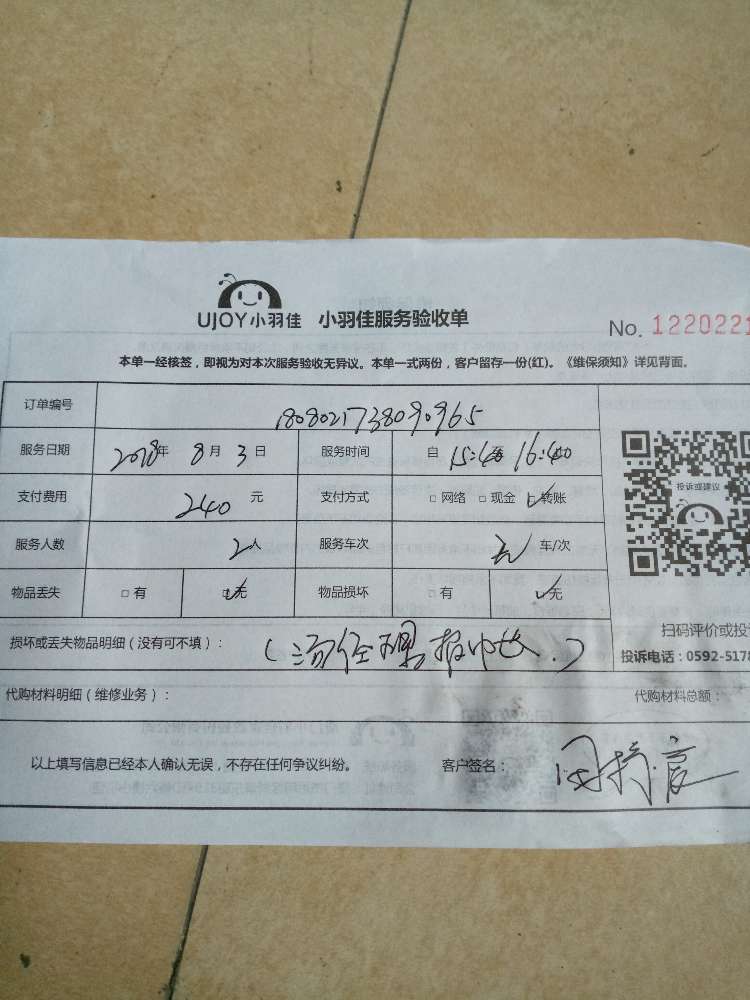 UJOY小羽佳 小羽佳服务验收单
No. 1220221
本单一经核签，即视为对本次服务验收无异议。本单一式两份，客户留存一份(红)。《维保须知》详见背面。
订单编号 1808021738090965
服务日期 2018年 8月 3日 服务时间 自 15:40至 16:40
支付费用 240 元 支付方式 □ 网络 □ 现金 ☑ 转账
投诉或建议
服务人数 2人 服务车次 车/次
物品丢失 □ 有 ☑无 物品损坏 □ 有 ☑无
扫码评价或投
损坏或丢失物品明细（没有可不填）： （汤经理报）
投诉电话：0592-5178
代购材料明细（维修业务）： 代购材料总额：
以上填写信息已经本人确认无误，不存在任何争议纠纷。 客户签名：